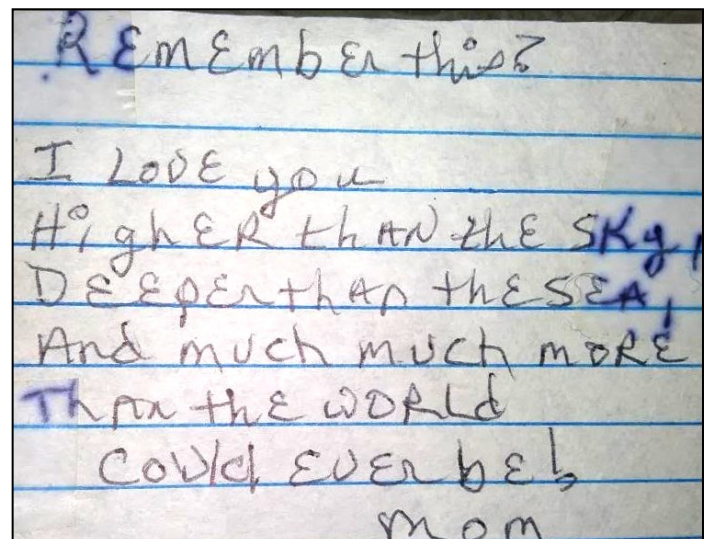 REmEmbEr this?
I LOVE you
HighER thAN thE SKy,
DEEpEr thAn thE SEA,
And much much moRE
ThAn thE woRLd
Could EvEr bE!
mom